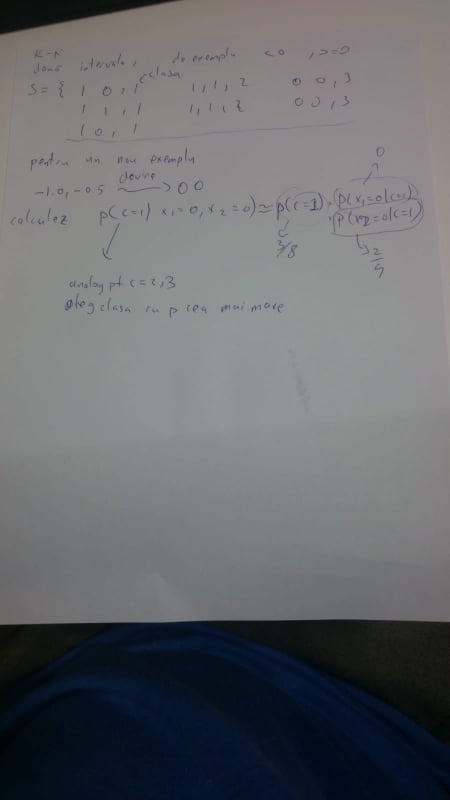 două intervale, de exemplu <0, >=0
clasa
S = { 1 0, 1 1, 1, 2 0 0, 3
1 1, 1 1, 1, 2 0 0, 3
1 0, 1
pentru un nou exemplu
-1.0, -0.5 → 0 0
0
calculez p(c=1| x1=0, x2=0) ≈ p(c=1) · p(x1=0|c=1)
p(x2=0|c=1)
3/8
2/4
analog pt c=2,3
aleg clasa cu p cea mai mare